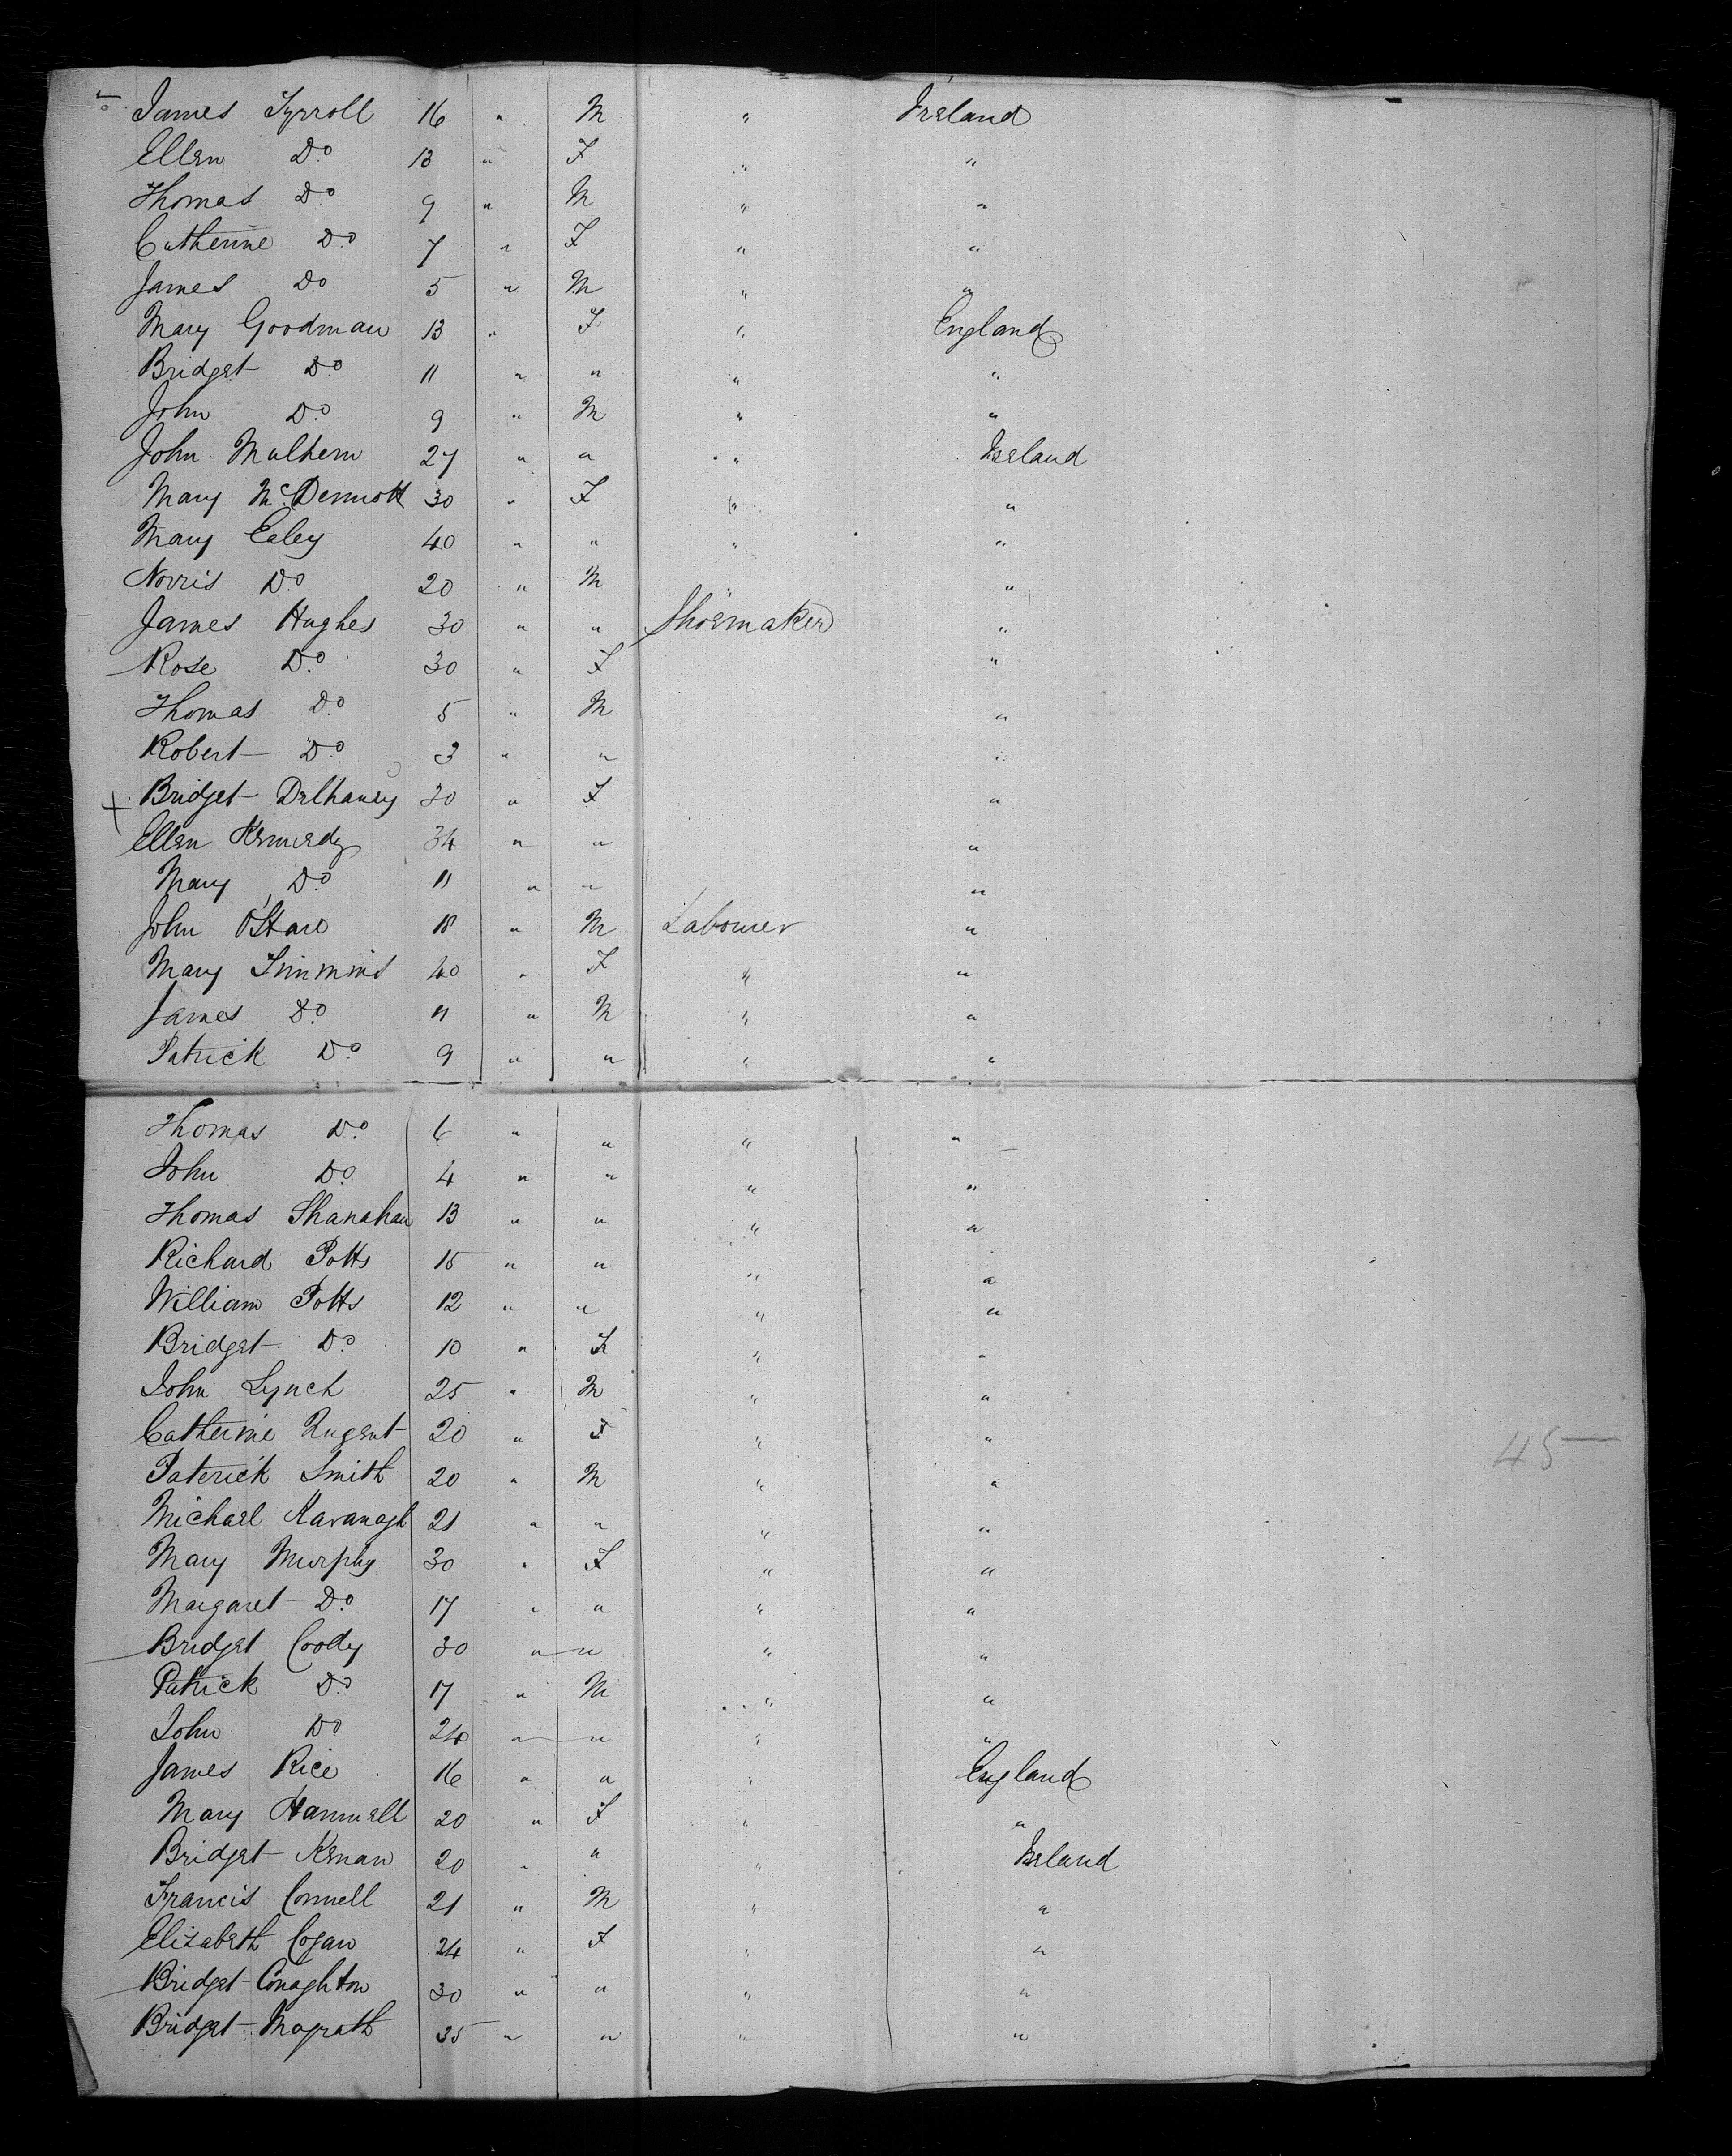 James Tyrroll 16 " M " Ireland
Ellen Do 13 " F " "
Thomas Do 9 " M " "
Catherine Do 7 " F " "
James Do 5 " M " "
Mary Goodman 13 " F " England
Bridget Do 11 " " " "
John Do 9 " M " "
John Mulhern 27 " " " Ireland
Mary McDermott 30 " F " "
Mary Ealey 40 " " " "
Norris Do 20 " M " "
James Hughes 30 " " Shoemaker "
Rose Do 30 " F "
Thomas Do 5 " M "
Robert Do 3 " " "
+ Bridget Delhaney 30 " F "
Ellen Kennedy 34 " " "
Mary Do 11 " " "
John O'Hare 18 " M Labourer "
Mary Timmins 40 " F " "
James Do 11 " M " "
Patrick Do 9 " " " "
Thomas Do 6 " " " "
John Do 4 " " " "
Thomas Shanahan 13 " " " "
Richard Potts 15 " " " "
William Potts 12 " " " "
Bridget Do 10 " F " "
John Lynch 25 " M " "
Catherine Nugent 20 " F " "
45
Paterick Smith 20 " M " "
Michael Kavanagh 21 " " " "
Mary Murphy 30 " F " "
Margaret Do 17 " " " "
Bridget Coody 30 " " " "
Patrick Do 17 " M " "
John Do 24 " " " "
James Rice 16 " " " England
Mary Hammell 20 " F " "
Bridget Kenan 20 " " " Ireland
Francis Connell 21 " M " "
Elizabeth Cogan 24 " F " "
Bridget Conaghton 30 " " " "
Bridget Magrath 35 " " " "